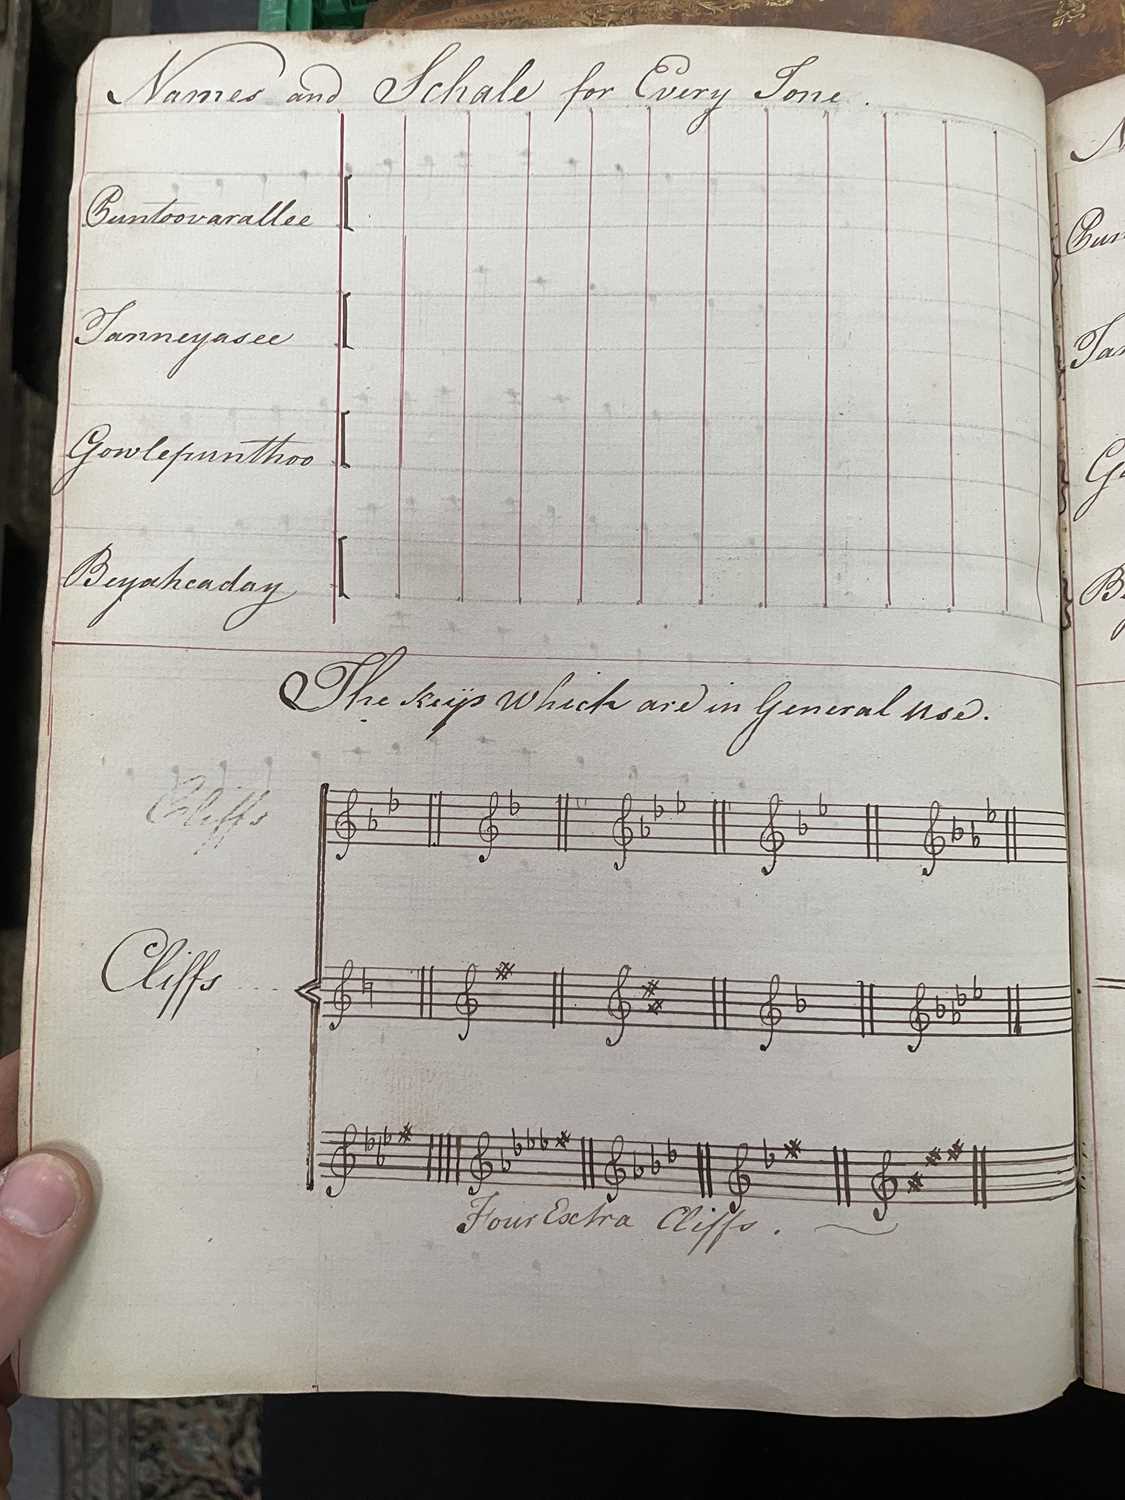 Names and Schale for Every Tone.
Puntoovarallee
Tanneyasee
Gowlepunthoo
Beyaheaday
The Keys which are in General use.
Cliffs
Cliffs
Four Extra Cliffs.